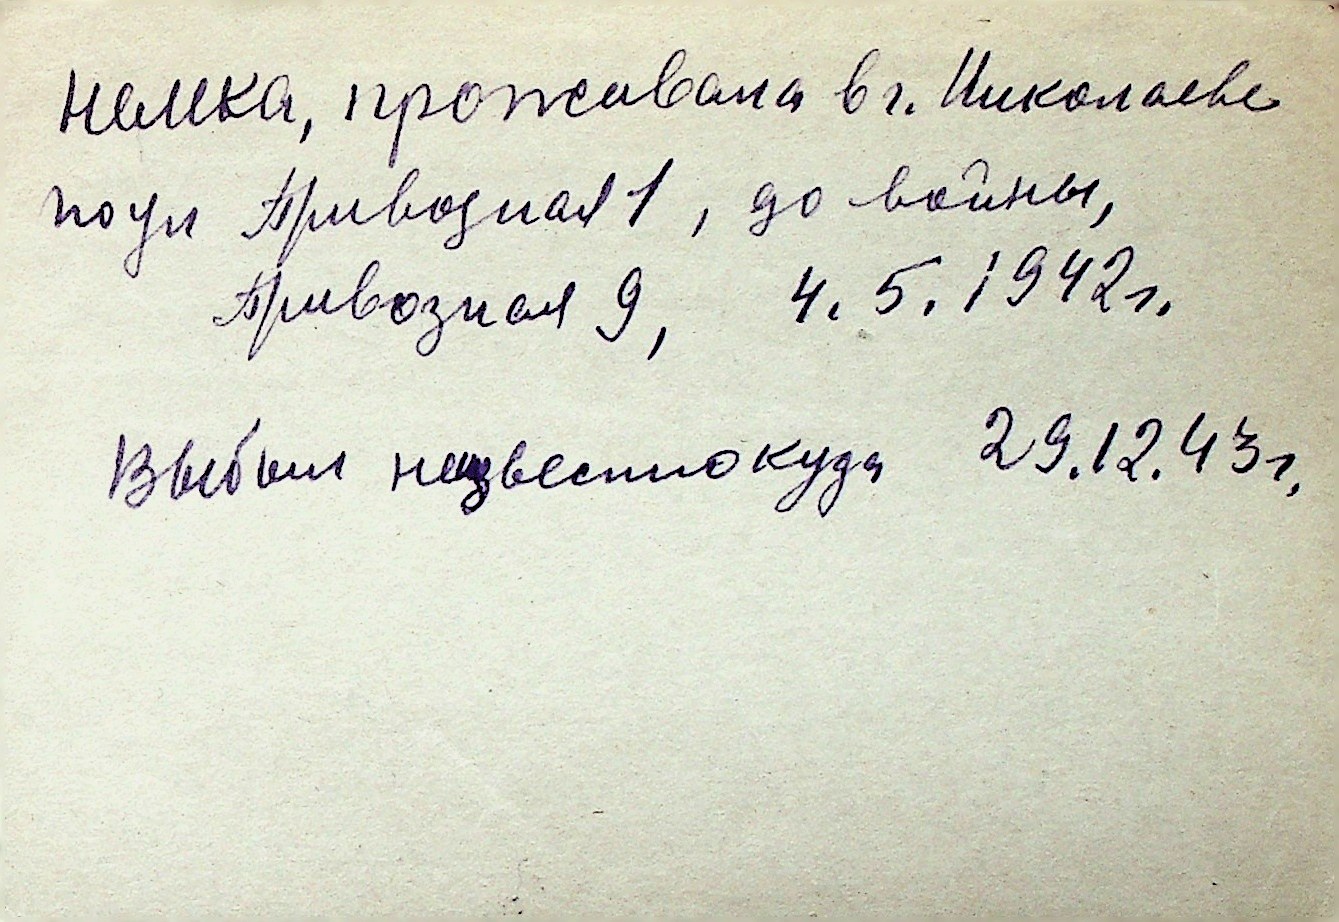 немка, проживала в г. Николаеве
по ул Привозная 1, до войны,
Привозная 9, 4.5.1942г.
Выбыл неизвестнокуда 29.12.43г.